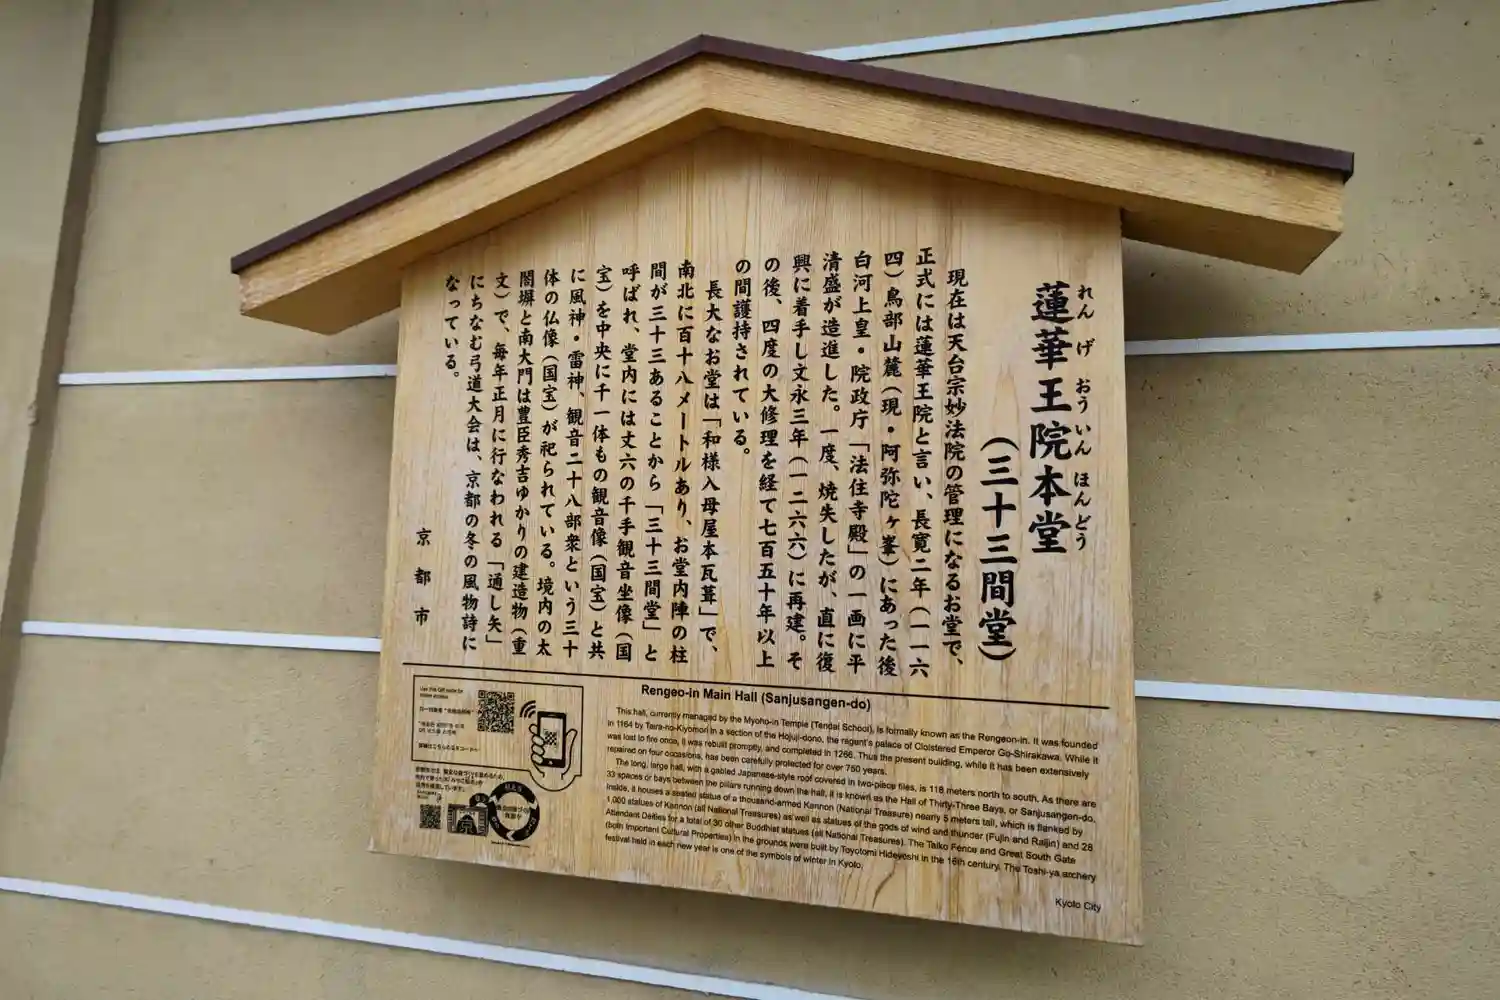 蓮華王院本堂
れんげおういんほんどう
（三十三間堂）
現在は天台宗妙法院の管理になるお堂で、
正式には蓮華王院と言い、長寛二年（一一六
四）鳥部山麓（現・阿弥陀ヶ峯）にあった後
白河上皇・院政庁「法住寺殿」の一画に平
清盛が造進した。一度、焼失したが、直に復
興に着手し文永三年（一二六六）に再建。そ
の後、四度の大修理を経て七百五十年以上
の間護持されている。
長大なお堂は「和様入母屋本瓦葺」で、
南北に百十八メートルあり、お堂内陣の柱
間が三十三あることから「三十三間堂」と
呼ばれ、堂内には丈六の千手観音坐像（国
宝）を中央に千一体もの観音像（国宝）と共
に風神・雷神、観音二十八部衆という三十
体の仏像（国宝）が祀られている。境内の太
閤塀と南大門は豊臣秀吉ゆかりの建造物（重
文）で、毎年正月に行なわれる「通し矢」
にちなむ弓道大会は、京都の冬の風物詩に
なっている。
京都市
Rengeo-in Main Hall (Sanjusangen-do)
This hall, currently managed by the Myoho-in Temple (Tendai School), is formally known as the Rengeon-in. It was founded
in 1164 by Taira-no-Kiyomori in a section of the Hojuji-dono, the regent's palace of Cloistered Emperor Go-Shirakawa. While it
was lost to fire once, it was rebuilt promptly, and completed in 1266. Thus the present building, while it has been extensively
repaired on four occasions, has been carefully protected for over 750 years.
The long, large hall, with a gabled Japanese-style roof covered in two-piece tiles, is 118 meters north to south. As there are
33 spaces or bays between the pillars running down the hall, it is known as the Hall of Thirty-Three Bays, or Sanjusangen-do.
Inside, it houses a seated statue of a thousand-armed Kannon (National Treasure) nearly 5 meters tall, which is flanked by
1,000 statues of Kannon (all National Treasures) as well as statues of the gods of wind and thunder (Fujin and Raijin) and 28
Attendant Deities for a total of 30 other Buddhist statues (all National Treasures). The Taiko Fence and Great South Gate
(both Important Cultural Properties) in the grounds were built by Toyotomi Hideyoshi in the 16th century. The Toshi-ya archery
festival held in each new year is one of the symbols of winter in Kyoto.
Kyoto City